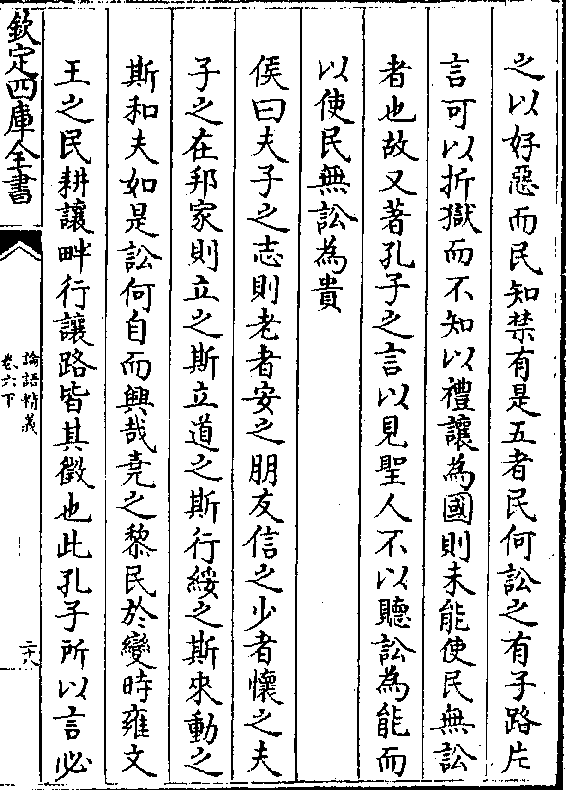 之以好惡而民知禁有是五者民何訟之有子路片
言可以折獄而不知以禮讓為國則未能使民無訟
者也故又著孔子之言以見聖人不以聽訟為能而
以使民無訟為貴
侯曰夫子之志則老者安之朋友信之少者懷之夫
子之在邦家則立之斯立道之斯行綏之斯來動之
斯和夫如是訟何自而興哉堯之黎民於變時雍文
王之民耕讓畔行讓路皆其徵也此孔子所以言必
欽定四庫全書
論語精義
卷六下
二十八